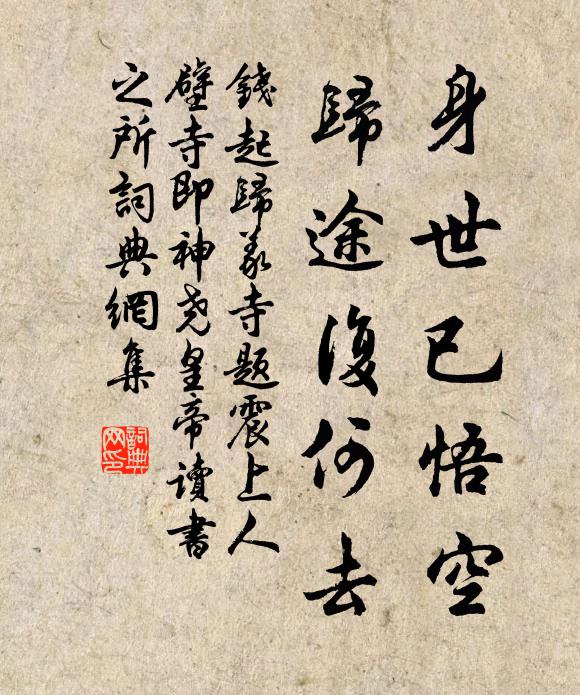 身世已悟空
歸途復何去
錢起歸義寺題震上人
壁寺即神尧皇帝讀書
之所詞典網集
詞典网印